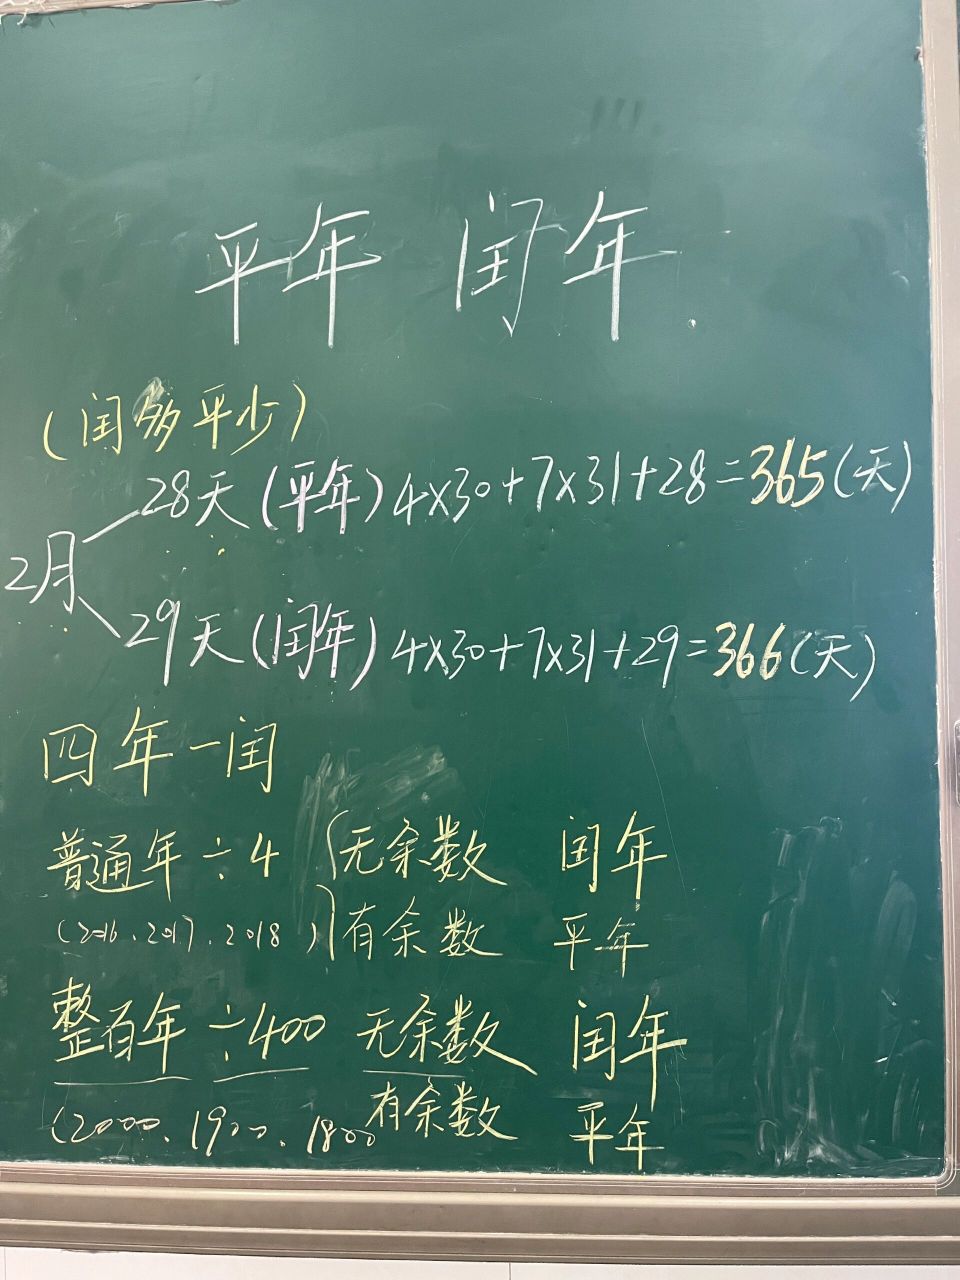 平年 闰年.
(闰多平少)
28天(平年)4×30+7×31+28=365(天)
2月
29天(闰年)4×30+7×31+29=366(天)
四年一闰
普通年÷4 无余数 闰年
(2016、2017、2018) 有余数 平年
整百年÷400 无余数 闰年
有余数 平年
(2000、1900、1800